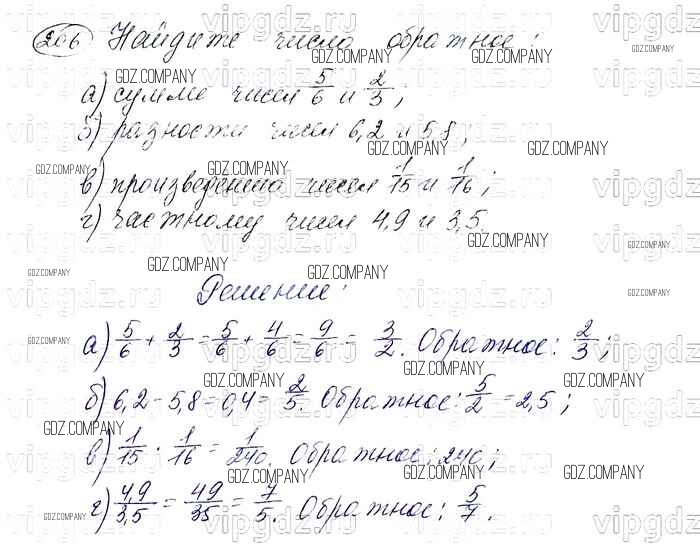 266 Найдите число обратное:
а) сумме чисел 5/6 и 2/3;
б) разности чисел 6,2 и 5,8;
в) произведению чисел 1/15 и 1/16;
г) частному чисел 4,9 и 3,5.
Решение:
а) 5/6 + 2/3 = 5/6 + 4/6 = 9/6 = 3/2. Обратное: 2/3;
б) 6,2 - 5,8 = 0,4 = 2/5. Обратное: 5/2 = 2,5;
в) 1/15 · 1/16 = 1/240. Обратное: 240;
г) 4,9/3,5 = 49/35 = 7/5. Обратное: 5/7.
vipgdz.ru
GDZ.COMPANY